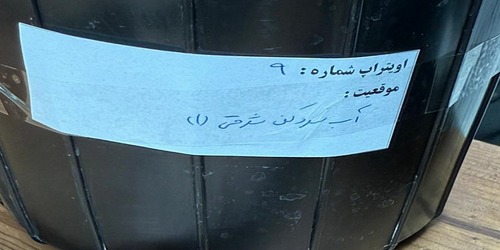 اویتراپ شماره : ۹
موقعیت :
آب سردکن شرقی (۱)